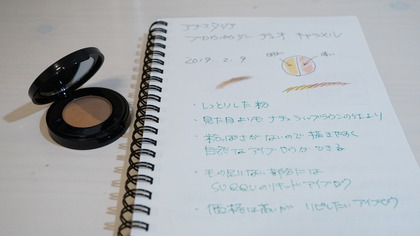 アナスタシア
ブロウパウダー デュオ キャラメル
2019. 2. 9
・しっとりした粉
・見た目よりも ナチュラルブラウンの仕上り
・粉っぽさがないので 描きやすく
自然なアイブロウができる
・毛の足りない部分には
SUQQUのリキッドアイブロウ
・価格は高いが リピしたいアイブロウ